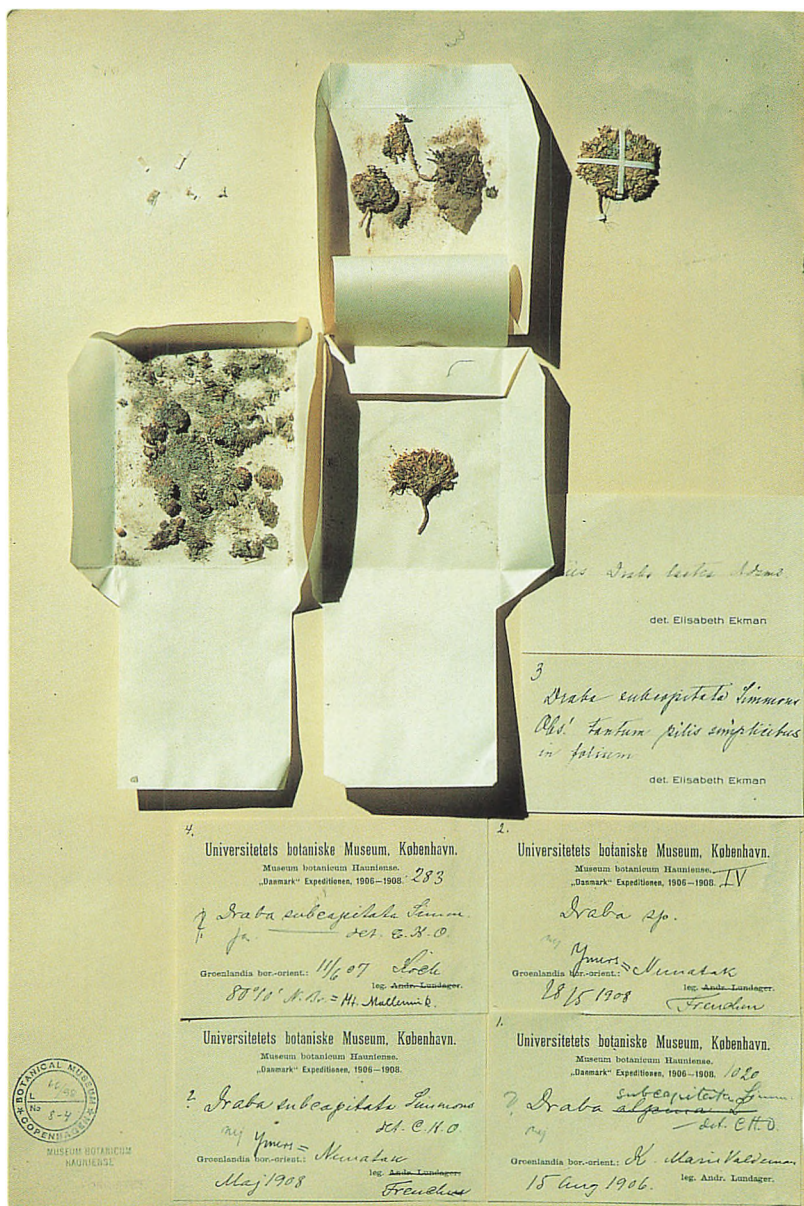 Draba lactea Adams.
det. Elisabeth Ekman
3
Draba subcapitata Simmons
Obs! Tantum pilis simplicibus
in folium
det. Elisabeth Ekman
4.
Universitetets botaniske Museum, København.
Museum botanicum Hauniense.
„Danmark“ Expeditionen, 1906—1908. 283
? Draba subcapitata Simm.
det. C.H.O.
Groenlandia bor.-orient.: 11/6 07 Koch
leg. Andr. Lundager.
80°10' N. Br. = Mt. Mallemuk.
2.
Universitetets botaniske Museum, København.
Museum botanicum Hauniense.
„Danmark“ Expeditionen, 1906—1908. IV
Draba sp.
nej
Ymers=
Groenlandia bor.-orient.: Nunatak
leg. Andr. Lundager.
28/5 1908
Freuchen
Universitetets botaniske Museum, København.
Museum botanicum Hauniense.
„Danmark“ Expeditionen, 1906—1908.
? Draba subcapitata Simmons
det. C.H.O.
nej Ymers=
Groenlandia bor.-orient.: Nunatak
leg. Andr. Lundager.
Maj 1908
Freuchen
1.
Universitetets botaniske Museum, København.
Museum botanicum Hauniense.
„Danmark“ Expeditionen, 1906—1908. 1020
subcapitata Simm.
? Draba alpina L
det. C.H.O.
nej
Groenlandia bor.-orient.: K. Marie Valdemar
leg. Andr. Lundager.
15 Aug 1906.
BOTANICAL MUSEUM
L
No 8-4
COPENHAGEN
MUSEUM BOTANICUM
HAUNIENSE